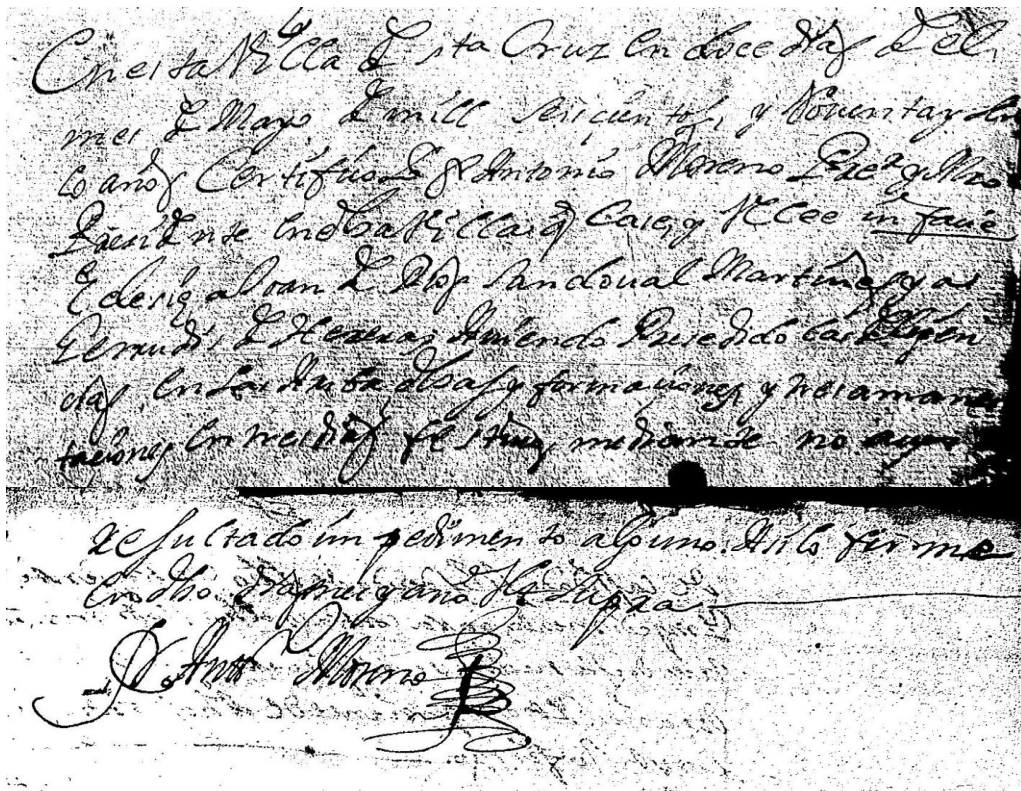 En esta Villa de sta Cruz en doce dias del
mes de Mayo de mill seiscientos, y noventa y cin
co años Certifico Yo fr Antonio Moreno
Presidente en dha Villa q Casé, y Velé in facie
Eclesię a Joan de Dios Sandoual Martines y a
Gertrudis de Herrera auiendo Precedido las
en las y formaciones, y tres amones
taciones en tres dias festiuos, mediante no auer
resultado impedimento alguno. Asi lo firme
en dho dia mes y año Vt supra
fr Antº Moreno